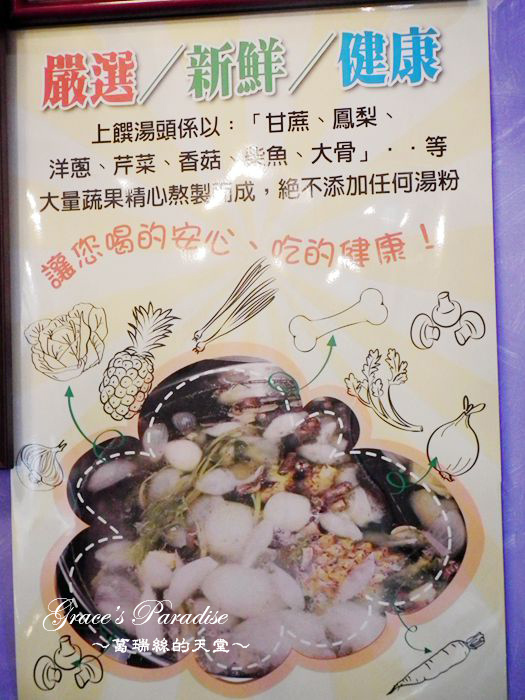 嚴選／新鮮／健康
上饌湯頭係以：「甘蔗、鳳梨、
洋蔥、芹菜、香菇、柴魚、大骨」‧‧等
大量蔬果精心熬製而成，絕不添加任何湯粉
讓您喝的安心、吃的健康！
Grace's Paradise
～葛瑞絲的天堂～